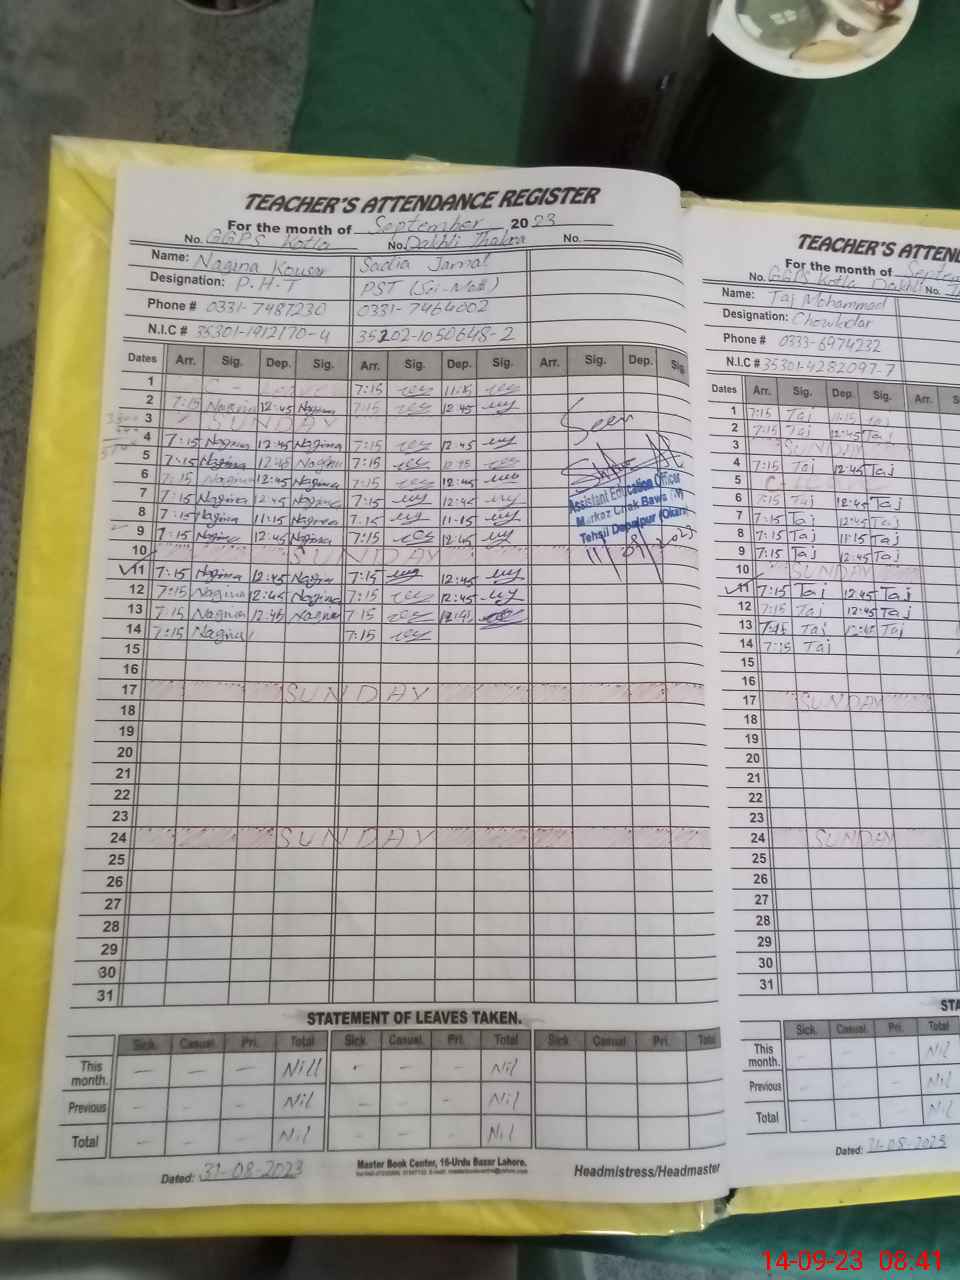 TEACHER'S ATTENDANCE REGISTER
For the month of September 2023
No. GGPS Kotla No. Dakhli Thakra No.
Name: Nagina Kousar Sadia Jamal
Designation: P-H-T PST (Sci-Math)
Phone # 0331-7487230 0331-7464002
N.I.C # 35301-1912170-4 35202-1050648-2
Dates Arr. Sig. Dep. Sig. Arr. Sig. Dep. Sig. Arr. Sig. Dep. Sig
1 C - Leave 7:15 11:15
2 7:15 Nagina 12:45 Nagina 7:15 12:45
3 SUNDAY
4 7:15 Nagina 12:45 Nagina 7:15 12:45
5 7:15 Nagina 12:45 Nagina 7:15 12:45
6 7:15 Nagina 12:45 Nagina 7:15 12:45
7 7:15 Nagina 12:45 Nagina 7:15 12:45
8 7:15 Nagina 11:15 Nagina 7:15 11:15
9 7:15 Nagina 12:45 Nagina 7:15 12:45
10 SUNDAY
11 7:15 Nagina 12:45 Nagina 7:15 12:45
12 7:15 Nagina 12:45 Nagina 7:15 12:45
13 7:15 Nagina 12:45 Nagina 7:15 12:45
14 7:15 Nagina 7:15
15
16
17 SUNDAY
18
19
20
21
22
23
24 SUNDAY
25
26
27
28
29
30
31
Seen
Assistant Education Officer
Markaz Chak Bawa (W)
Tehsil Depalpur (Okara)
11/09/2023
STATEMENT OF LEAVES TAKEN.
Sick. Casual. Pri. Total Sick. Casual. Pri. Total Sick Casual Pri. Total
This month. — — — Nill - — — Nil
Previous — — - Nil - — - Nil
Total - — - Nil - — - Nil
Dated: 31-08-2023
Master Book Center, 16-Urdu Bazar Lahore.
Headmistress/Headmaster
TEACHER'S ATTEN
For the month of Septem
No. GGPS Kotla Dakhli No.
Name: Taj Mohammad
Designation: Chowkidar
Phone # 0333-6974232
N.I.C # 35301-4282097-7
Dates Arr. Sig. Dep. Sig. Arr. S
1 7:15 Taj 11:15 Taj
2 7:15 Taj 12:45 Taj
3 SUNDAY
4 7:15 Taj 12:45 Taj
5 C - Leave
6 7:15 Taj 12:45 Taj
7 7:15 Taj 12:45 Taj
8 7:15 Taj 11:15 Taj
9 7:15 Taj 12:45 Taj
10 SUNDAY
11 7:15 Taj 12:45 Taj
12 7:15 Taj 12:45 Taj
13 7:15 Taj 12:45 Taj
14 7:15 Taj
15
16
17 SUNDAY
18
19
20
21
22
23
24 SUNDAY
25
26
27
28
29
30
31
STA
Sick. Casual. Pri. Total
This month. - - - Nil
Previous - - - Nil
Total - - - Nil
Dated: 31-08-2023
14-09-23 08:41